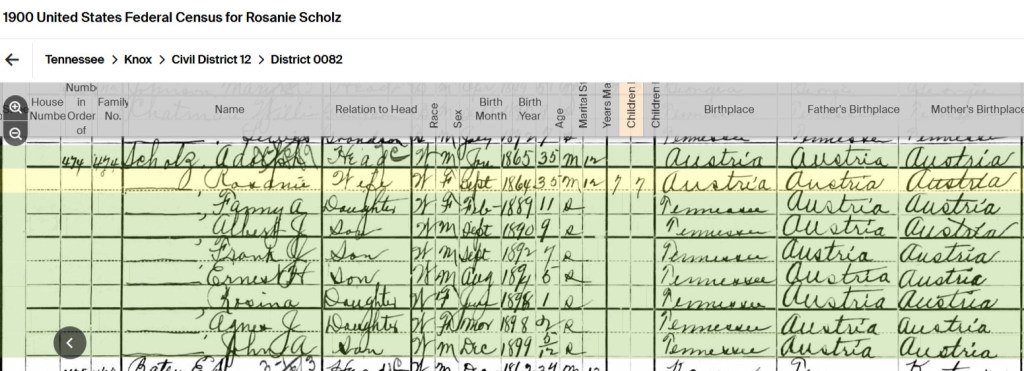 1900 United States Federal Census for Rosanie Scholz
Tennessee > Knox > Civil District 12 > District 0082
House Number
Numb in Order of
Family No.
Name
Relation to Head
Race
Sex
Birth Month
Birth Year
Age
Marital S
Years Ma
Children
Children
Birthplace
Father's Birthplace
Mother's Birthplace
474 474 Scholz, Head W M 1865 35 M 12 Austria Austria Austria
Rosanie Wife W F Sept 1864 35 M 12 7 7 Austria Austria Austria
Fanny A Daughter W F Feb 1889 11 S Tennessee Austria Austria
Albert J Son W M Sept 1890 9 S Tennessee Austria Austria
Frank Son W M Sept 1892 7 S Tennessee Austria Austria
Ernest H Son W M Aug 5 S Tennessee Austria Austria
Rosina Daughter W F 1898 1 S Tennessee Austria Austria
Agnes J Daughter W F 1898 S Tennessee Austria Austria
John A Son W M Dec 1899 5/12 S Tennessee Austria Austria